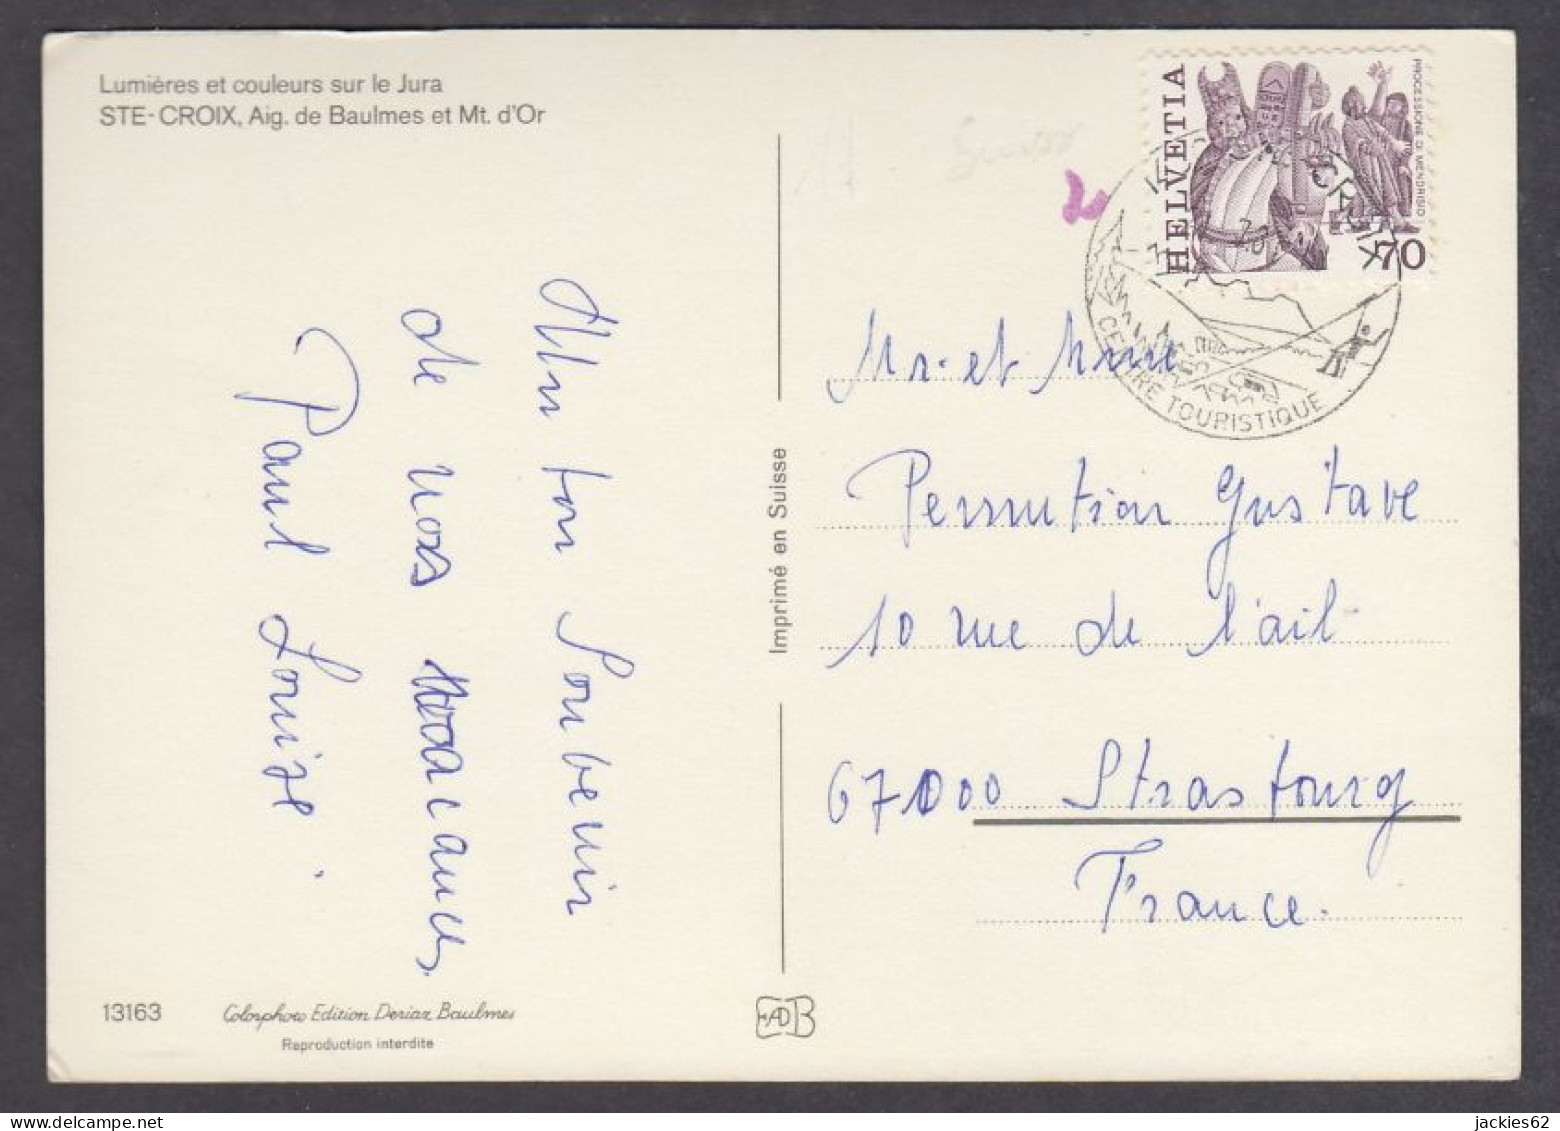 Lumières et couleurs sur le Jura
STE-CROIX, Aig. de Baulmes et Mt. d'Or
Un bon Souvenir
de nos vacances
Paul Louise.
13163
Colorphoto Edition Deriaz Baulmes
Reproduction interdite
Imprimé en Suisse
Suisse
2
HELVETIA
PROCESSIONE DI MENDRISIO
70
CROIX
CENTRE TOURISTIQUE
Mr. et Mme
Permution Gustave
10 rue de l'ail
67000 Strasbourg
France.
jackies62